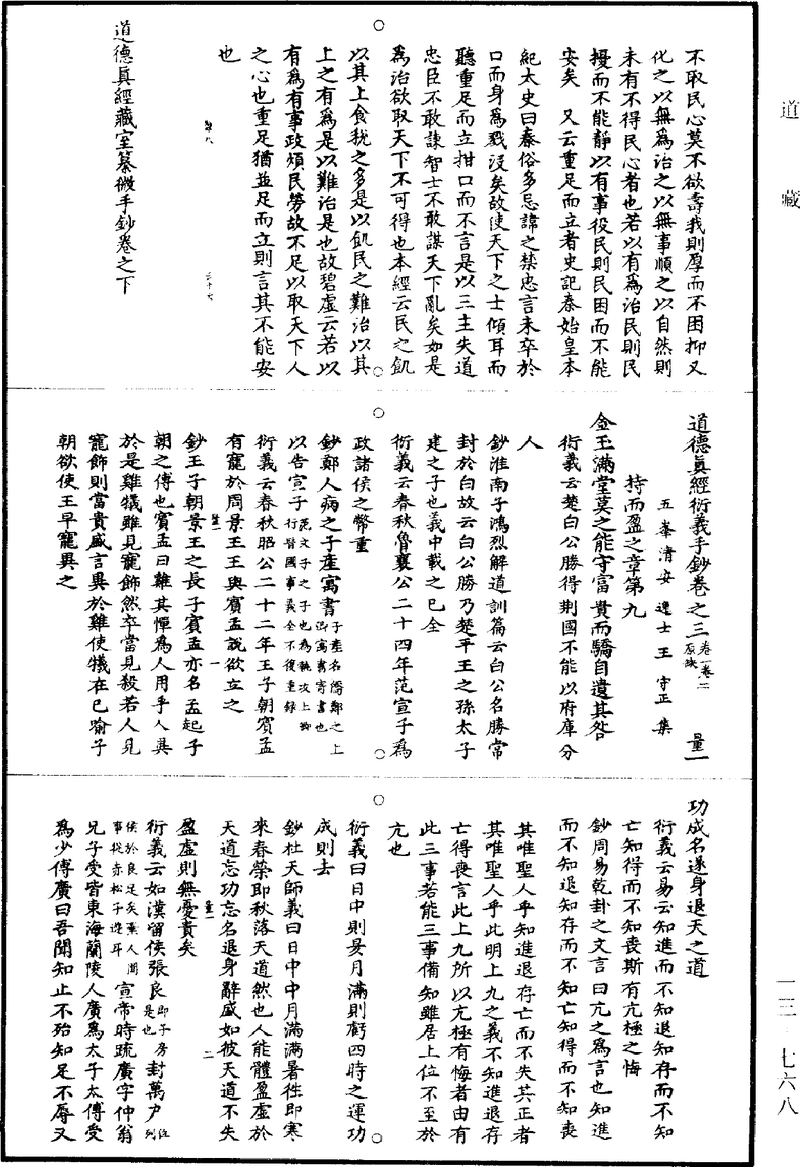 道藏
不取民心莫不欲壽我則厚而不困抑又
化之以無為治之以無事順之以自然則
未有不得民心者也若以有為治民則民
擾而不能靜以有事役民則民困而不能
安矣　又云重足而立者史記秦始皇本
紀太史曰秦俗多忌諱之禁忠言未卒於
口而身為戮沒矣故使天下之士傾耳而
聽重足而立拑口而不言是以三主失道
忠臣不敢諫智士不敢謀天下亂矣如是
為治欲取天下不可得也本經云民之飢
以其上食稅之多是以飢民之難治以其
上之有為是以難治是也故碧虛云若以
有為有事政煩民勞故不足以取天下人
之心也重足猶並足而立則言其不能安
也
道德真經藏室纂微手鈔卷之下
道德真經衍義手鈔卷之三 卷一卷二原缺　量一
五峯清安逸士王守正集
持而盈之章第九
金玉滿堂莫之能守富貴而驕自遺其咎
衍義云楚白公勝得荆國不能以府庫分
人
鈔淮南子鴻烈解道訓篇云白公名勝常
封於白故云白公勝乃楚平王之孫太子
建之子也義中載之已全
衍義云春秋魯襄公二十四年范宣子為
政諸侯之幣重
鈔鄭人病之子產寓書 子產名僑鄭之上卿寓書寄書也
以告宣子 范文子之子也為執政上卿行晉國事義全不復重錄
衍義云春秋昭公二十二年王子朝賓孟
有寵於周景王王與賓孟說欲立之
量一　一
鈔王子朝景王之長子賓孟亦名孟起子
朝之傅也賓孟曰雞其憚為人用乎人異
於是雞犧雖見寵飾然卒當見殺若人見
寵飾則當貴盛言異於雞使犧在已喻子
朝欲使王早寵異之
功成名遂身退天之道
衍義云易云知進而不知退知存而不知
亡知得而不知喪斯有亢極之悔
鈔周易乾卦之文言曰亢之為言也知進
而不知退知存而不知亡知得而不知喪
其唯聖人乎知進退存亡而不失其正者
其唯聖人乎此明上九之義不知進退存
亡得喪言此上九所以亢極有悔者由有
此三事若能三事備知雖居上位不至於
亢也
衍義曰日中則昃月滿則虧四時之運功
成則去
鈔杜天師義曰日中中月滿滿暑徃即寒
來春榮即秋落天道然也人能體盈虛於
天道忘功忘名退身辭盛如彼天道不失
量一　二
盈虛則無憂責矣
衍義云如漢留侯張良 即子房是也 封萬户 位列
侯於良足矣棄人間事從赤松子遊耳 宣帝時疏廣字仲翁
兄子受皆東海蘭陵人廣為太子太傅受
為少傅廣曰吾聞知止不殆知足不辱又
一三·七六八